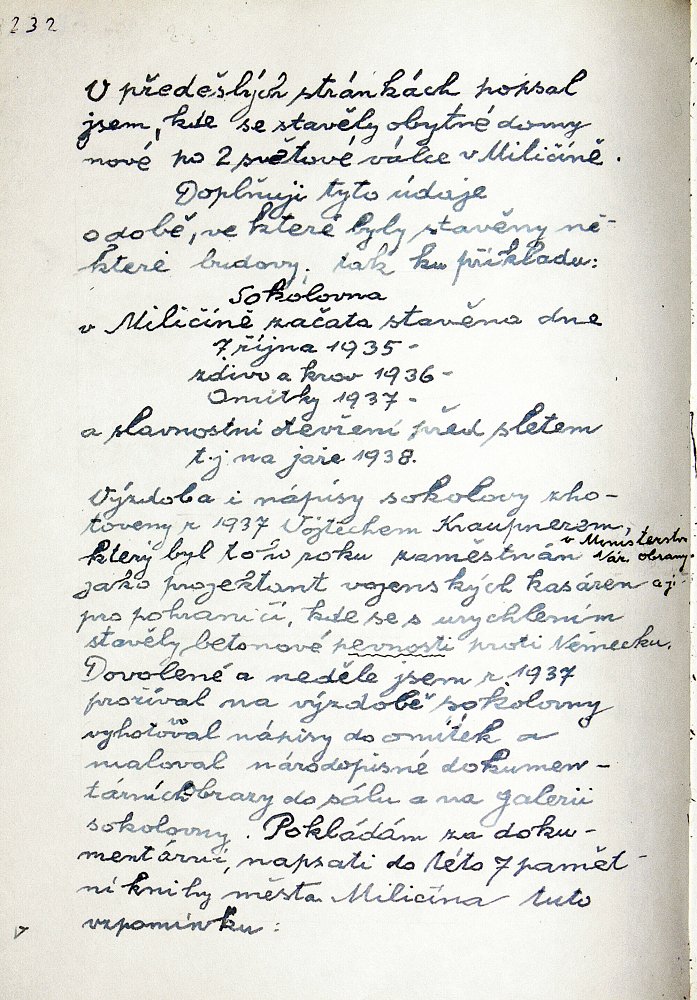 232
V předešlých stránkách popsal
jsem, kde se stavěly obytné domy
nové po 2 světové válce v Miličíně.
Doplňuji tyto údaje
o době, ve které byly stavěny ně-
které budovy, tak ku příkladu:
Sokolovna
v Miličíně začata stavěna dne
7. října 1935 -
zdivo a krov 1936 -
Omítky 1937 -
a slavnostní otevření před sletem
t.j na jaře 1938.
Výzdoba i nápisy sokolovy zho-
toveny r 1937 Vojtěchem Kraupnerem,
který byl toho roku zaměstnán v Ministerstvu Nár. obrany.
jako projektant vojenských kasáren a ji-
pro pohraničí, kde se s urychlením
stavěly betonové pevnosti proti Německu.
Dovolené a neděle jsem r 1937
prožíval na výzdobě sokolovny
vyhotovoval nápisy do omítek a
maloval národopisné dokumen-
tárních obrazy do sálu a na galerii
sokolovny. Pokládám za doku-
mentární, napsati do této 7 pamět-
ní knihy města Miličína tuto
vzpomínku: